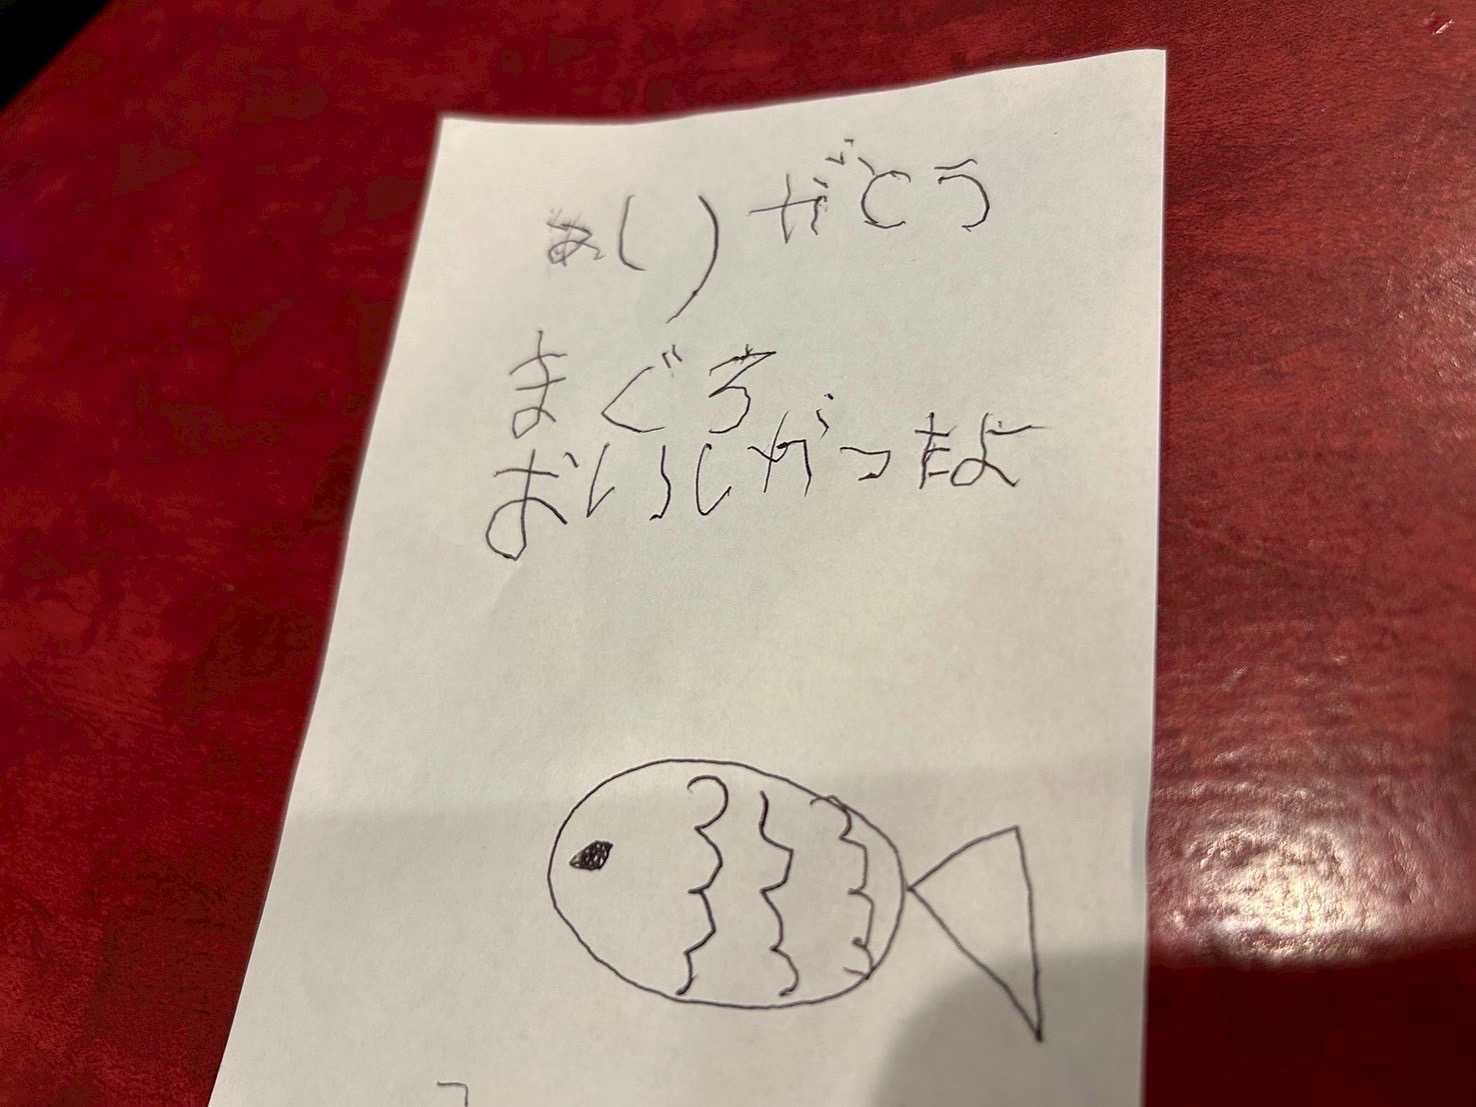 ありがとう
まぐろ
おいしがったよ